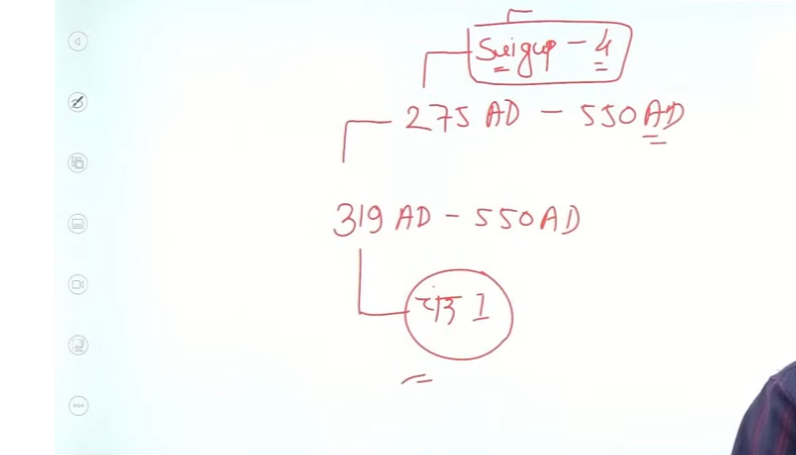 Srigup - 4
275 AD - 550 AD
319 AD - 550 AD
चंद्र I